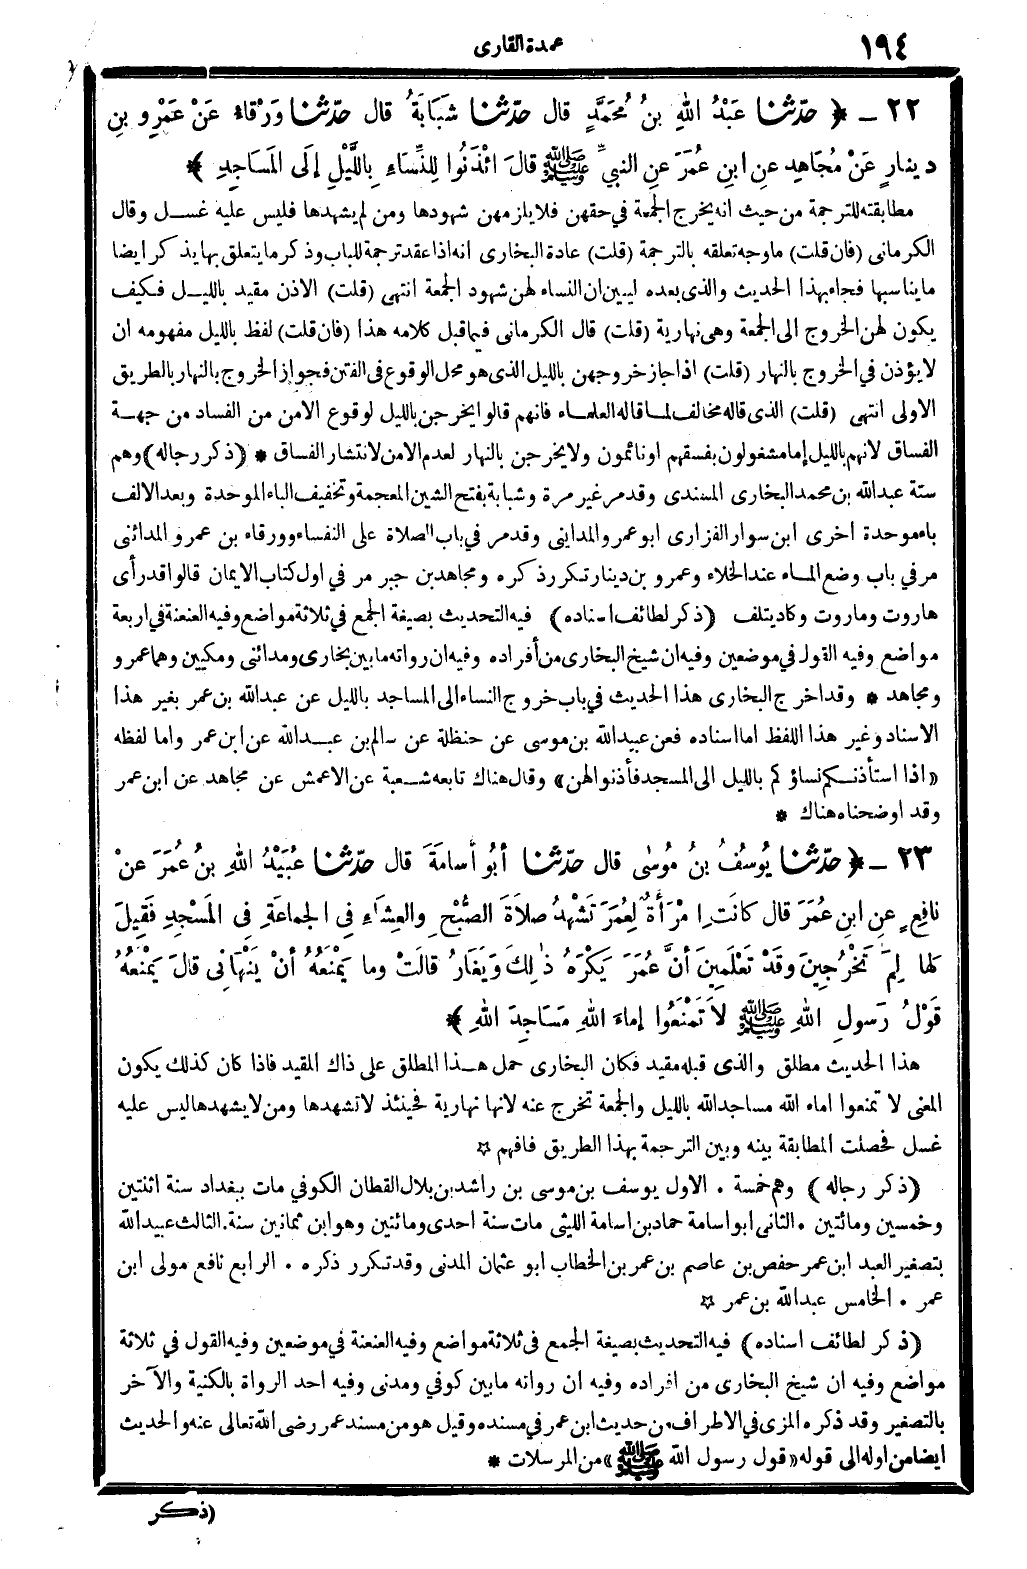 ١٩٤
عمدة القارى
٢٢ ــ ﴿ حَدَّثَنَا عَبْدُ اللهِ بنُ مُحَمَّدٍ قال حَدَّثَنَا شَبَابَةُ قال حَدَّثَنَا وَرْقاءُ عَنْ عَمْرِو بنِ
دينارٍ عَنْ مُجَاهِدٍ عنِ ابنِ عُمَرَ عنِ النبيِّ ﷺ قالَ ائْذَنُوا لِلنِّسَاءِ بِاللَّيْلِ إلَى المَسَاجِدِ ﴾
مطابقته للترجمة من حيث انه يخرج الجمعة في حقهن فلا يلزمهن شهودها ومن لم يشهدها فليس عليه غسل وقال
الكرمانى (فان قلت) ما وجه تعلقه بالترجمة (قلت) عادة البخارى انه اذا عقد ترجمة للباب وذكر ما يتعلق بها يذكر ايضا
ما يناسبها فجاء بهذا الحديث والذى بعده ليبين ان النساء لهن شهود الجمعة انتهى (قلت) الاذن مقيد بالليل فكيف
يكون لهن الخروج الى الجمعة وهى نهارية (قلت) قال الكرمانى فيما قبل كلامه هذا (فان قلت) لفظ بالليل مفهومه ان
لا يؤذن في الخروج بالنهار (قلت) اذا جاز خروجهن بالليل الذى هو محل الوقوع فى الفتن فجواز الخروج بالنهار بالطريق
الاولى انتهى (قلت) الذى قاله مخالف لما قاله العلماء فانهم قالوا يخرجن بالليل لوقوع الامن من الفساد من جهة
الفساق لانهم بالليل إما مشغولون بفسقهم او نائمون ولا يخرجن بالنهار لعدم الامن لانتشار الفساق * (ذكر رجاله) وهم
ستة عبدالله بن محمد البخارى المسندى وقد مر غير مرة وشبابة بفتح الشين المعجمة وتخفيف الباء الموحدة وبعد الالف
باء موحدة اخرى ابن سوار الفزارى ابو عمرو المدايني وقد مر في باب الصلاة على النفساء وورقاء بن عمرو المدائنى
مر في باب وضع الماء عند الخلاء وعمرو بن دينار تكرر ذكره ومجاهد بن جبر مر في اول كتاب الايمان قالوا قد رأى
هاروت وماروت وكاد يتلف (ذكر لطائف اسناده) فيه التحديث بصيغة الجمع في ثلاثة مواضع وفيه العنعنة في اربعة
مواضع وفيه القول في موضعين وفيه ان شيخ البخارى من أفراده وفيه ان رواته ما بين بخارى ومدائنى ومكيين وهما عمرو
ومجاهد * وقد اخرج البخارى هذا الحديث في باب خروج النساء الى المساجد بالليل عن عبدالله بن عمر بغير هذا
الاسناد وغير هذا اللفظ اما اسناده فعن عبيدالله بن موسى عن حنظلة عن سالم بن عبدالله عن ابن عمر واما لفظه
«اذا استأذنكم نساؤكم بالليل الى المسجد فأذنوا لهن» وقال هناك تابعه شعبة عن الاعمش عن مجاهد عن ابن عمر
وقد اوضحناه هناك *
٢٣ ــ ﴿ حَدَّثَنَا يُوسُفُ بنُ مُوسَى قال حَدَّثَنَا أبُو أسامَةَ قال حَدَّثَنَا عُبَيْدُ اللهِ بنُ عُمَرَ عنْ
نافِعٍ عنِ ابنِ عُمَرَ قال كانَتِ امْرَأةٌ لِعُمَرَ تَشْهَدُ صلاَةَ الصُّبْحِ والعِشاءِ فِي الجماعَةِ فِي المَسْجِدِ فَقِيلَ
لها لِمَ تَخْرُجِينَ وقَدْ تَعْلَمِينَ أنَّ عُمَرَ يَكْرَهُ ذلِكَ ويَغَارُ قالَتْ وما يَمْنَعُهُ أنْ يَنْهَانِي قالَ يَمْنَعُهُ
قَوْلُ رَسولِ اللهِ ﷺ لاَ تَمْنَعُوا إماءَ اللهِ مَسَاجِدَ اللهِ ﴾
هذا الحديث مطلق والذى قبله مقيد فكان البخارى حمل هذا المطلق على ذاك المقيد فاذا كان كذلك يكون
المعنى لا تمنعوا اماء الله مساجد الله بالليل والجمعة تخرج عنه لانها نهارية فحينئذ لا تشهدها ومن لا يشهدها ليس عليه
غسل فحصلت المطابقة بينه وبين الترجمة بهذا الطريق فافهم ☆
(ذكر رجاله) وهم خمسة . الاول يوسف بن موسى بن راشد بن بلال القطان الكوفي مات ببغداد سنة اثنتين
وخمسين ومائتين . الثانى ابو اسامة حماد بن اسامة الليثى مات سنة احدى ومائتين وهو ابن ثمانين سنة . الثالث عبيدالله
بتصغير العبد ابن عمر حفص بن عاصم بن عمر بن الخطاب ابو عثمان المدنى وقد تكرر ذكره . الرابع نافع مولى ابن
عمر . الخامس عبدالله بن عمر ☆
(ذكر لطائف اسناده) فيه التحديث بصيغة الجمع فى ثلاثة مواضع وفيه العنعنة في موضعين وفيه القول في ثلاثة
مواضع وفيه ان شيخ البخارى من افراده وفيه ان رواته ما بين كوفي ومدنى وفيه احد الرواة بالكنية والآخر
بالتصغير وقد ذكره المزى في الاطراف من حديث ابن عمر في مسنده وقيل هو من مسند عمر رضى الله تعالى عنه والحديث
ايضا من اوله الى قوله «قول رسول الله ﷺ» من المرسلات *
(ذكر